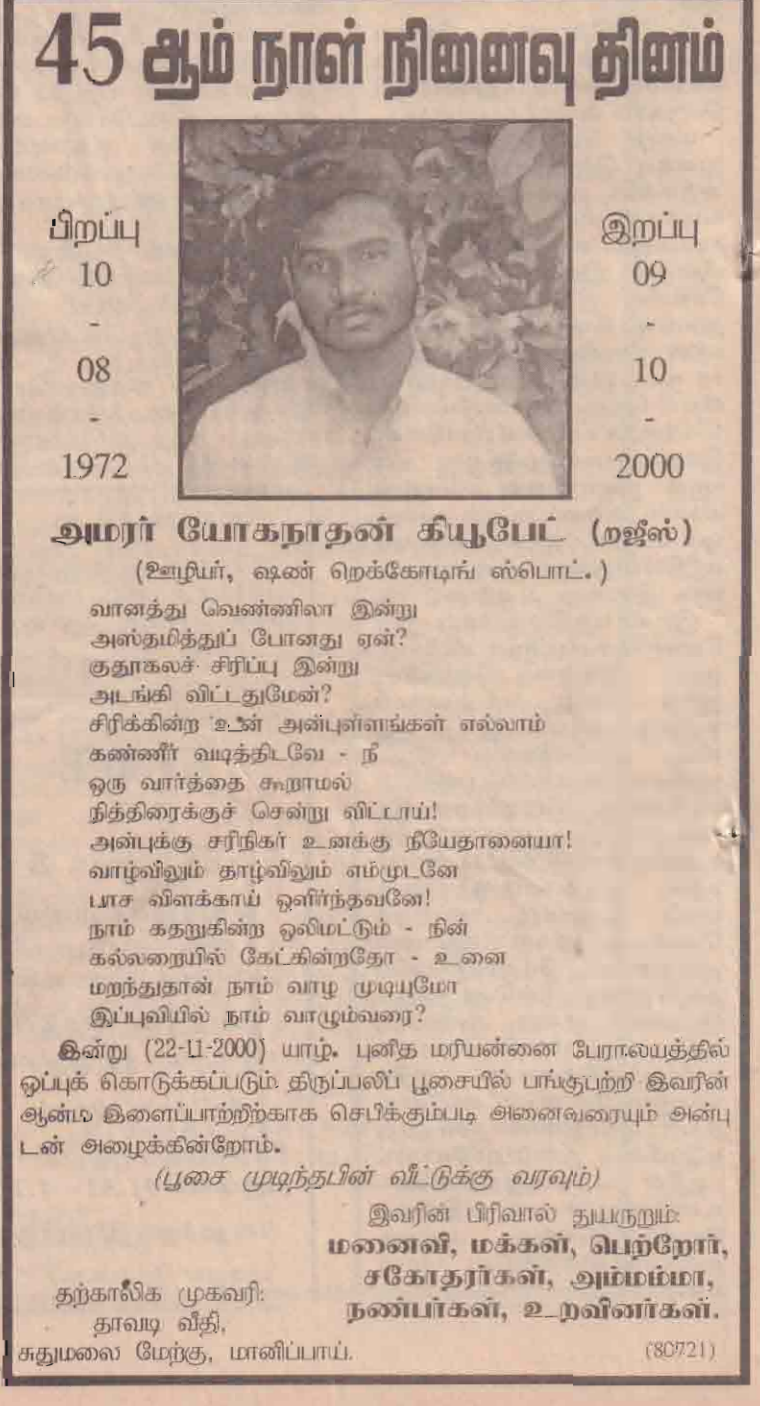 45 ஆம் நாள் நினைவு தினம்
பிறப்பு
10
-
08
-
1972
இறப்பு
09
-
10
-
2000
அமரர் யோகநாதன் கியூபேட் (றஜீஸ்)
(ஊழியர், ஷண் றெக்கோடிங் ஸ்பொட்.)
வானத்து வெண்ணிலா இன்று
அஸ்தமித்துப் போனது ஏன்?
குதூகலச் சிரிப்பு இன்று
அடங்கி விட்டதுமேன்?
சிரிக்கின்ற உன் அன்புள்ளங்கள் எல்லாம்
கண்ணீர் வடித்திடவே - நீ
ஒரு வார்த்தை கூறாமல்
நித்திரைக்குச் சென்று விட்டாய்!
அன்புக்கு சரிநிகர் உனக்கு நீயேதானையா!
வாழ்விலும் தாழ்விலும் எம்முடனே
பாச விளக்காய் ஒளிர்ந்தவனே!
நாம் கதறுகின்ற ஒலிமட்டும் - நின்
கல்லறையில் கேட்கின்றதோ - உனை
மறந்துதான் நாம் வாழ முடியுமோ
இப்புவியில் நாம் வாழும்வரை?
இன்று (22-11-2000) யாழ். புனித மரியன்னை பேராலயத்தில்
ஒப்புக் கொடுக்கப்படும் திருப்பலிப் பூசையில் பங்குபற்றி இவரின்
ஆன்ம இளைப்பாற்றிற்காக செபிக்கும்படி அனைவரையும் அன்பு
டன் அழைக்கின்றோம்.
(பூசை முடிந்தபின் வீட்டுக்கு வரவும்)
இவரின் பிரிவால் துயருறும்:
மனைவி, மக்கள், பெற்றோர்,
சகோதரர்கள், அம்மம்மா,
நண்பர்கள், உறவினர்கள்.
தற்காலிக முகவரி:
தாவடி வீதி,
சுதுமலை மேற்கு, மானிப்பாய்.
(80721)